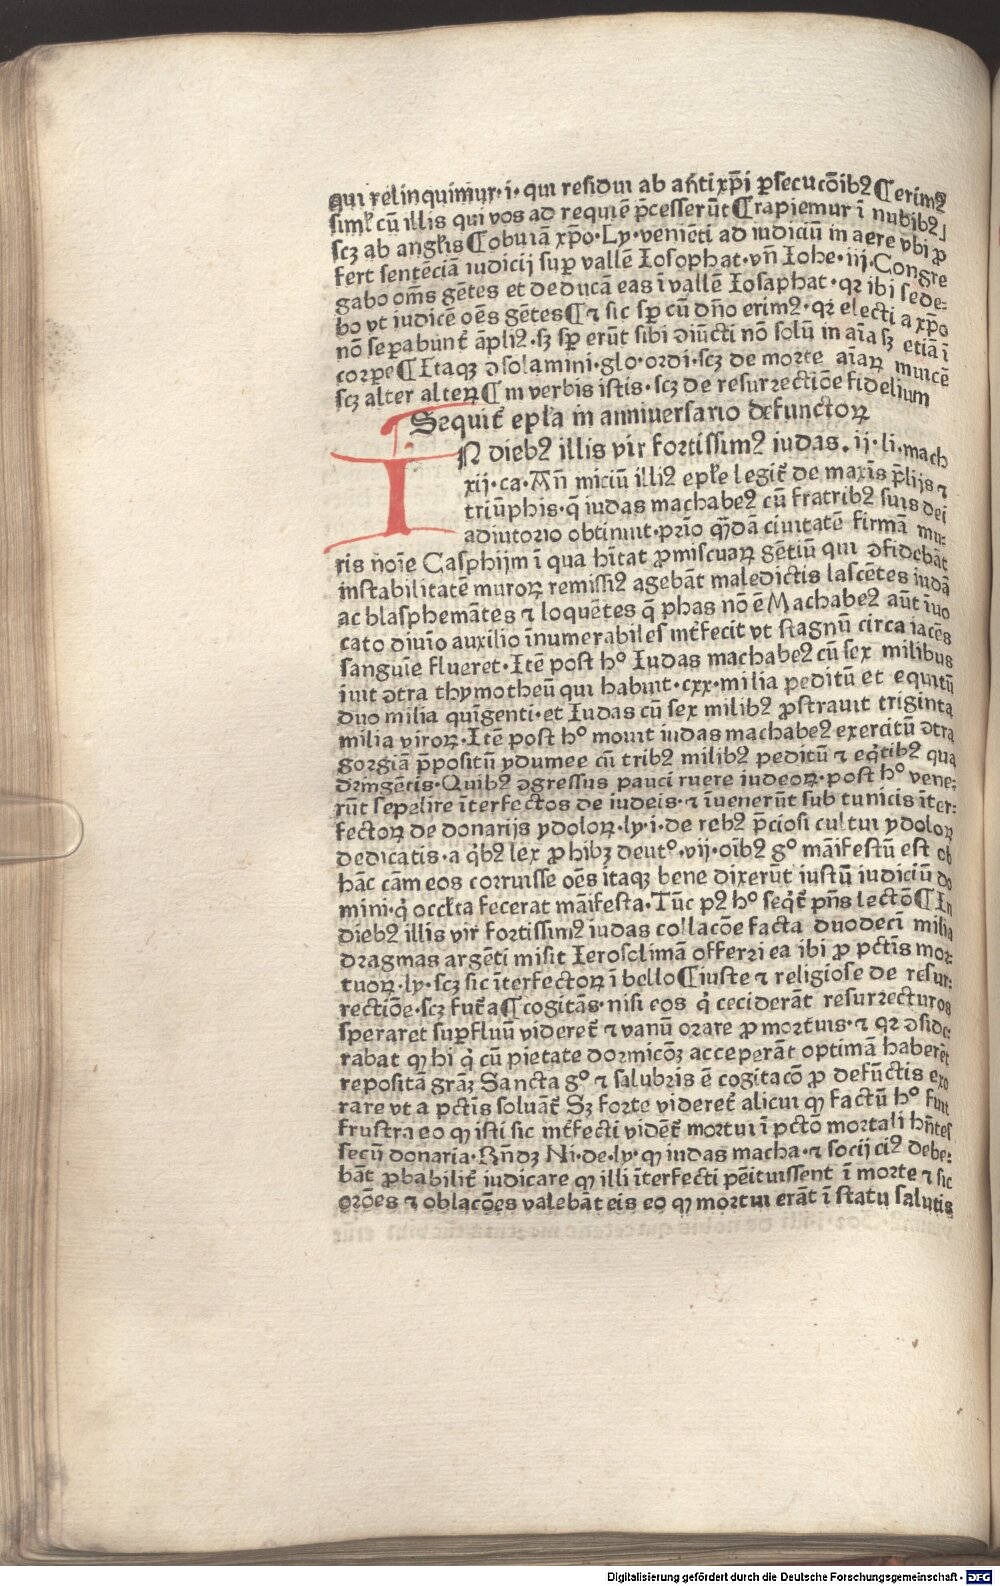 qui relinquimur·i·qui residui ab añtixp̄i p̱secucōibꝰ ¶ erimꝰ
simĺ cū illis qui vos ad requiē p̄cesserūt ¶ rapiemur ī nubibꝰ
scꝫ ab angĺis ¶ obuiā xp̄o·Ly·veniēti ad iudiciū in aere vbi ꝓ
fert sentēciā iudicij suꝑ vallē Iosophat·vn̄ Iohe·iij·Congre
gabo om̄s gētes et deducā eas ī vallē Iosaphat·qꝛ ibi sede⸗
bo vt iudicē oēs gētes ¶ ⁊ sic sꝑ cū dn̄o erimꝰ·qꝛ electi a xp̄o
nō seꝑabunt̄ āpliꝰ·sꝫ sꝑ erūt sibi ꝯiūcti nō solū in aīa sꝫ etiā ī
corꝑe ¶ Itaqꝫ ꝯsolamini·glo·ordi·scꝫ de morte aīaꝝ inuicē
scꝫ alter alteꝝ ¶ in verbis istis·scꝫ de resurrectiōe fidelium
Sequit̄ epĺa in anniversario defunctoꝝ
IN diebꝰ illis vir fortissimꝰ iudas·ij·li·mach
xij·ca·An̄ iniciū illiꝰ epĺe legit̄ de maxīs p̄lijs ⁊
triūphis·q̄ iudas machabeꝰ cū fratribꝰ suis dei
adiutorio obtinuit·prīo q̄dā ciuitatē firmā mu⸗
ris noīe Casphijm ī qua hītat ꝓmiscuaꝝ gētiū qui ꝯfidebāt
instabilitatē muroꝝ remissiꝰ agebāt maledictis lascētes iudā
ac blasphemātes ⁊ loquētes q̄ phas nō ē Machabeꝰ aūt īuo
cato diuīo auxilio īnumerabiles int̄fecit vt stagnū circa iacēs
sanguīe flueret·Itē post hᵒ Iudas machabeꝰ cū sex milibus
iuit ꝯtra thymotheū qui habuit·cxx·milia peditū et equitū
duo milia quīgenti·et Iudas cū sex milibꝰ ꝓstrauit triginta
milia viroꝝ·Itē post hᵒ mouit iudas machabeꝰ exercitū ꝯtra
gorgiā p̄positū ydumee cū tribꝰ milibꝰ peditū ⁊ eq̇tibꝰ qua
dringētis·Quibꝰ ꝯgressus pauci ruere iudeoꝝ·post hᵒ vene⸗
rūt sepelire īterfectos de iudeis·⁊ īuenerūt sub tunicis īter⸗
fectoꝝ de donarijs ydoloꝝ·ly·i·de rebꝰ p̄ciosi cultui ydoloꝝ
dedicatis·a q̇bꝰ lex ꝓhibꝫ deutᵒ·vij·oībꝰ gᵒ māifestū est ob
hāc cām eos corruisse oēs itaqꝫ bene dixerūt iustū iudiciū do
mini·q̇ occĺta fecerat māifesta·Tūc pꝰ hᵒ seq̇t̄ pn̄s lectō ¶ In
diebꝰ illis vir fortissimꝰ iudas collacōe facta duodecī milia
dragmas argēti misit Ierosolimā offerri ea ibi ꝓ pctīs mor⸗
tuoꝝ·ly·scꝫ sic īterfectoꝝ ī bello ¶ iuste ⁊ religiose de resur⸗
rectiōe·scꝫ fut̄a ¶ cogitās·nisi eos q̇ ceciderāt resurrecturos
speraret suꝑfluū videret̄ ⁊ vanū orare ꝓ mortuis·⁊ qꝛ ꝯside⸗
rabat qꝙ hi q̇ cū pietate dormicōꝫ acceperāt optimā haberēt
repositā grāꝫ Sancta gᵒ ⁊ salubris ē cogitacō ꝓ defūctis exo
rare vt a pctīs soluāt̄ Sꝫ forte videret̄ alicui qꝙ factū hᵒ fuit
frustra eo qꝙ isti sic int̄fecti vidēt̄ mortui ī pctō mortali hn̄tes
secū donaria·Rn̄dꝫ Ni·de·ly·qꝙ iudas macha·⁊ socij eiꝰ debe⸗
bāt ꝓbabilit̄ iudicare qꝙ illi īterfecti pēituissent ī morte ⁊ sic
orōes ⁊ oblacōes valebāt eis eo qꝙ mortui erāt ī statu salutis
Digitalisierung gefördert durch die Deutsche Forschungsgemeinschaft - DFG